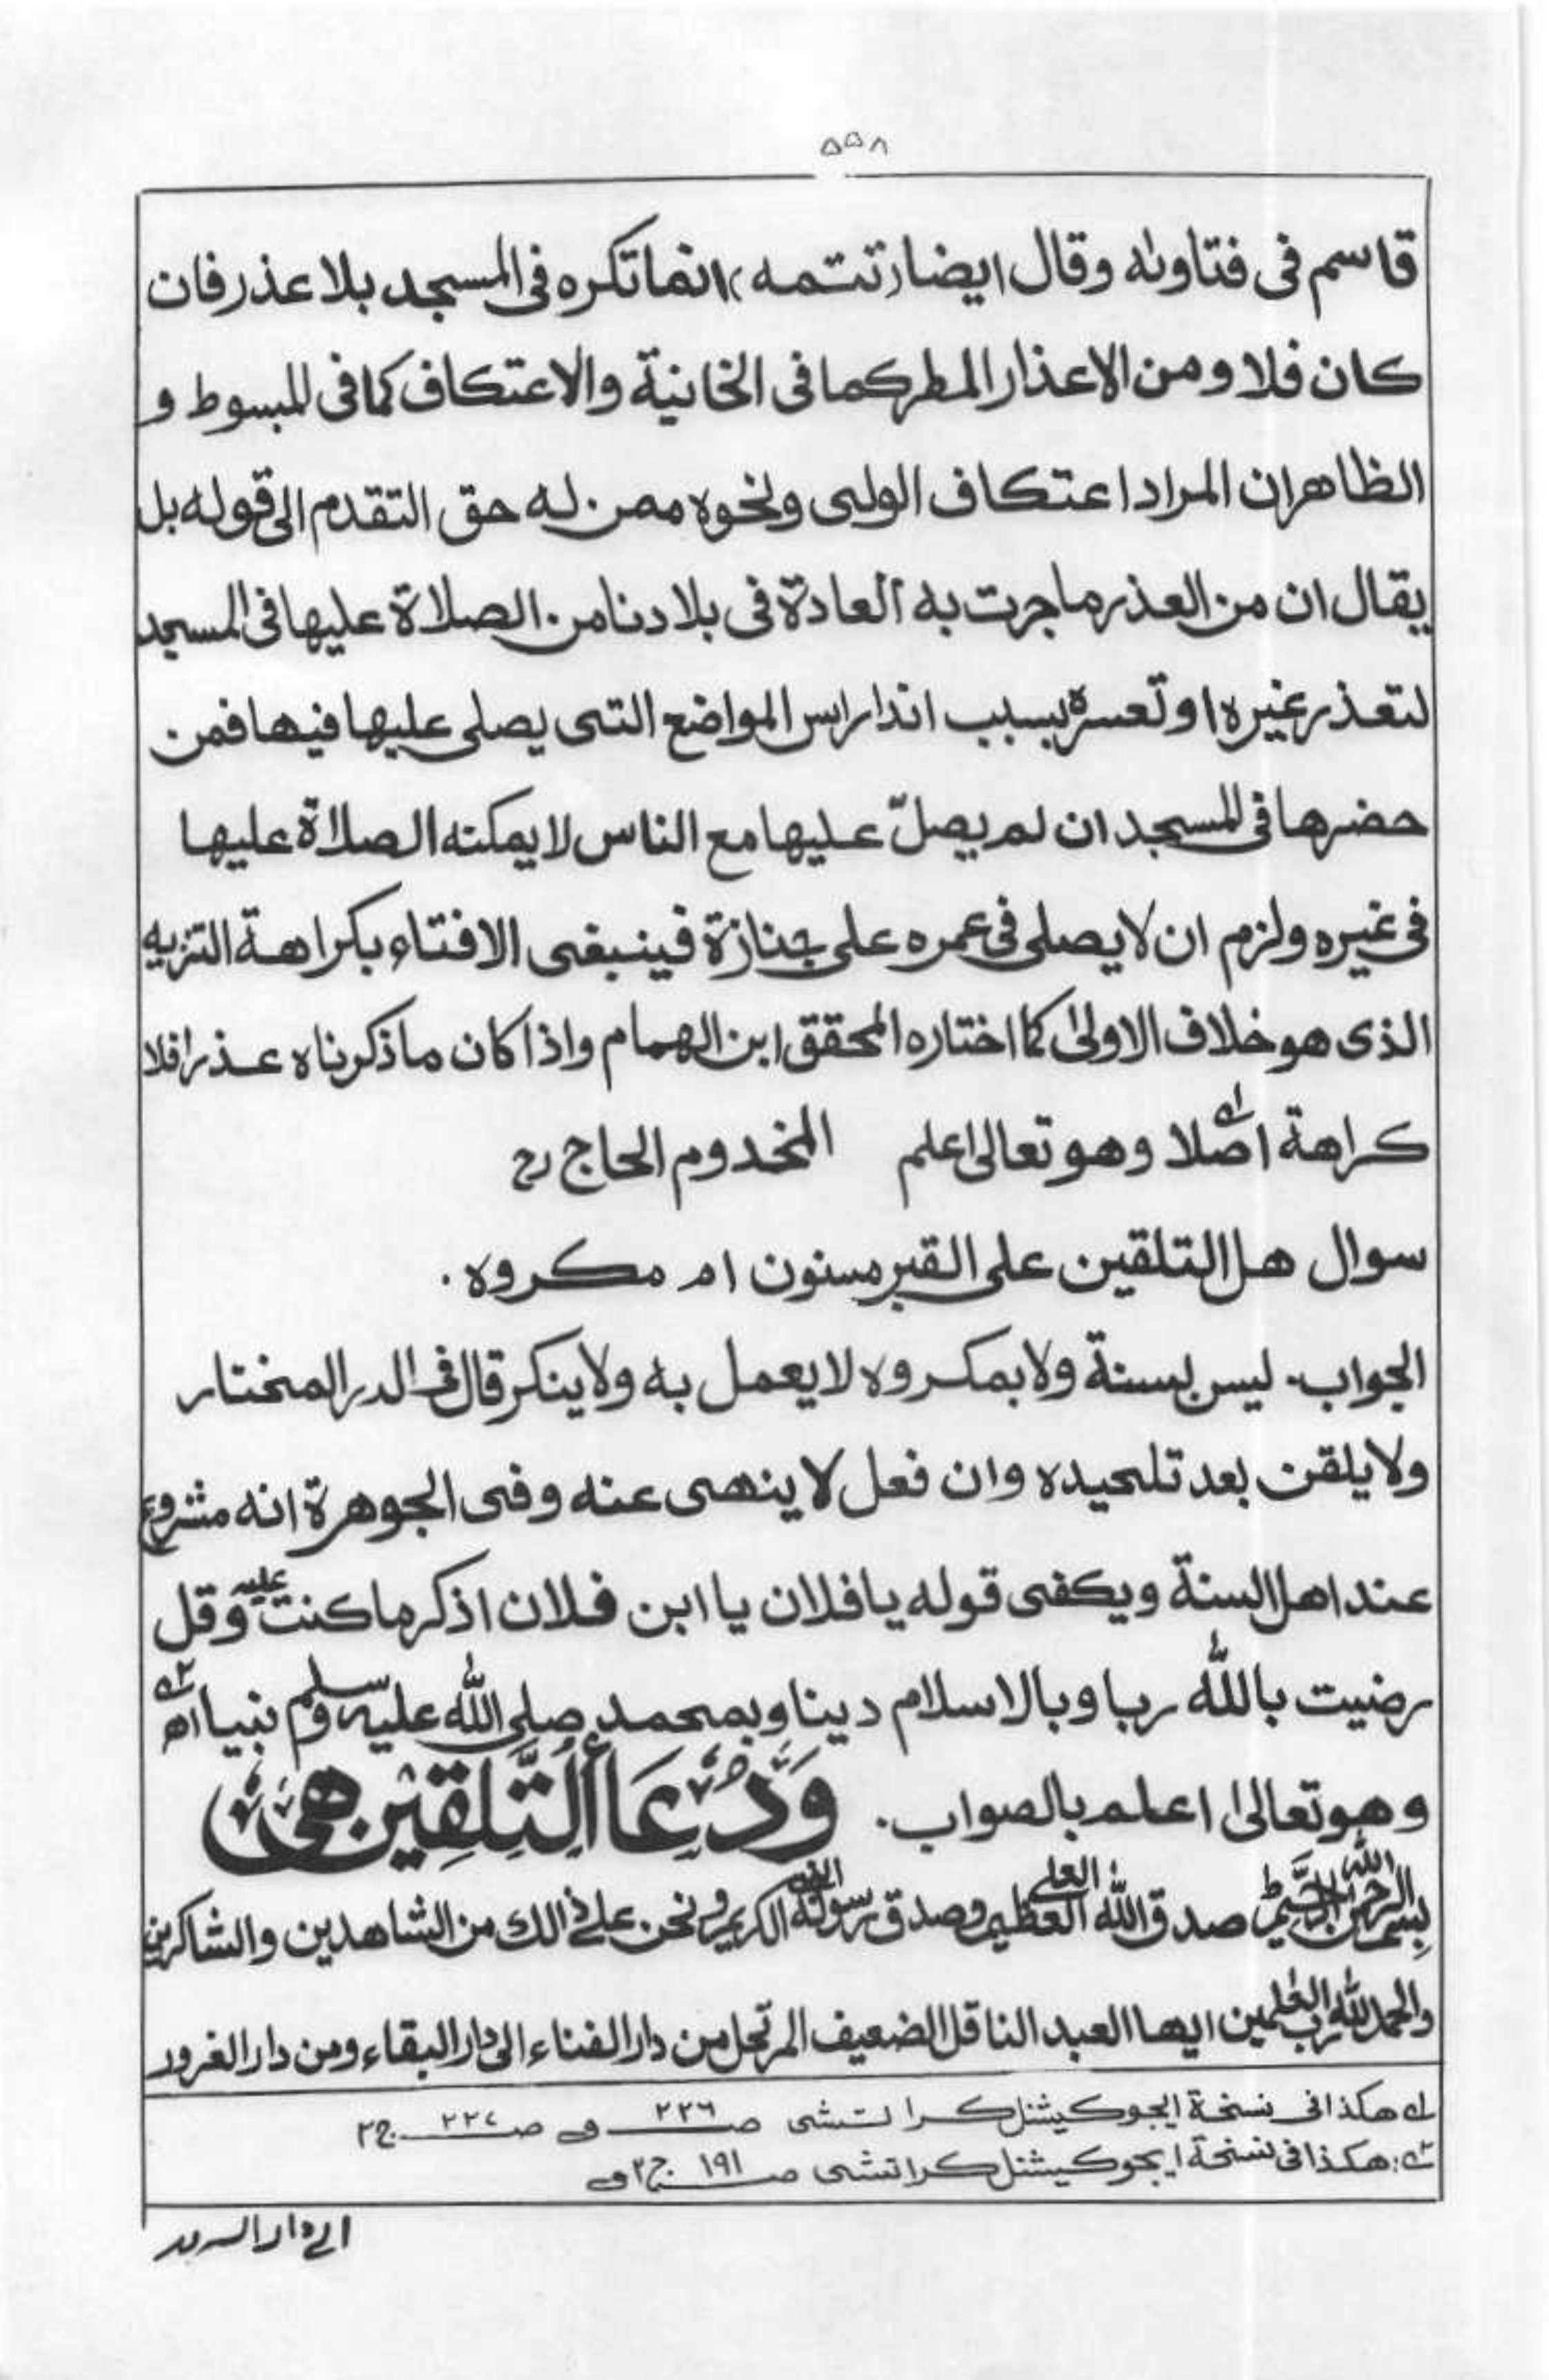 ۵۵۸
قاسم فی فتاوٰٮه وقال ایضا (تتمه) انما تکره فی المسجد بلا عذر فان
کان فلا ومن الاعذار المطر کما فی الخانیة والاعتکاف کما فی المبسوط و
الظاهر ان المراد اعتکاف الولی ونحوه ممن له حق التقدم الی قوله بل
یقال ان من العذر ما جرت به العادة فی بلادنا من الصلاة علیها فی المسجد
لتعذر غیره او تعسره بسبب اندار اس المواضع التی یصلی علیها فیها فمن
حضرها فی المسجد ان لم یصلّ علیها مع الناس لا یمکنه الصلاة علیها
فی غیره ولزم ان لا یصلی فی عمره علی جنازة فینبغی الافتاء بکراهة التنزیه
الذی هو خلاف الاولیٰ کما اختاره المحقق ابن الهمام واذا کان ما ذکرناه عذرا فلا
کراهة اصلا ۱؎ وهو تعالی اعلم المخدوم الحاج رح
سوال هل التلقین علی القبر مسنون ام مکروه.
الجواب۔ لیس بسنة ولا بمکروه لا یعمل به ولا ینکر قال فی الدر المختار
ولا یلقن بعد تلحیده وان فعل لا ینهی عنه وفی الجوهرة انه مشروع
عند اهل السنة ویکفی قوله یا فلان یا ابن فلان اذکر ما کنت علیه وقل
رضیت بالله ربا وبالاسلام دینا وبمحمد صلی الله علیه وسلم نبیا اھ ۲؎
وهو تعالیٰ اعلم بالصواب. وَدُعَا أَلتَّلِقِیْنِ هِیَ
بسم الله الرحمن الرحیم ط صدق الله العلی العظیم وصدق رسوله النبی الکریم ونحن علی ذالك من الشاهدین والشاکرین
والحمد لله رب العٰلمین ایها العبد الناقل الضعیف المرتحل من دار الفناء الی دار البقاء ومن دار الغرور
۱؎ هکذا فی نسخة ایجوکیشنل کراتشی صـ ۲۲۶ و صـ ۲۲۷ ج۲
۲؎: هکذا فی نسخة ایجوکیشنل کراتشی صـ ۱۹۱ ج۲
الی دار السرور